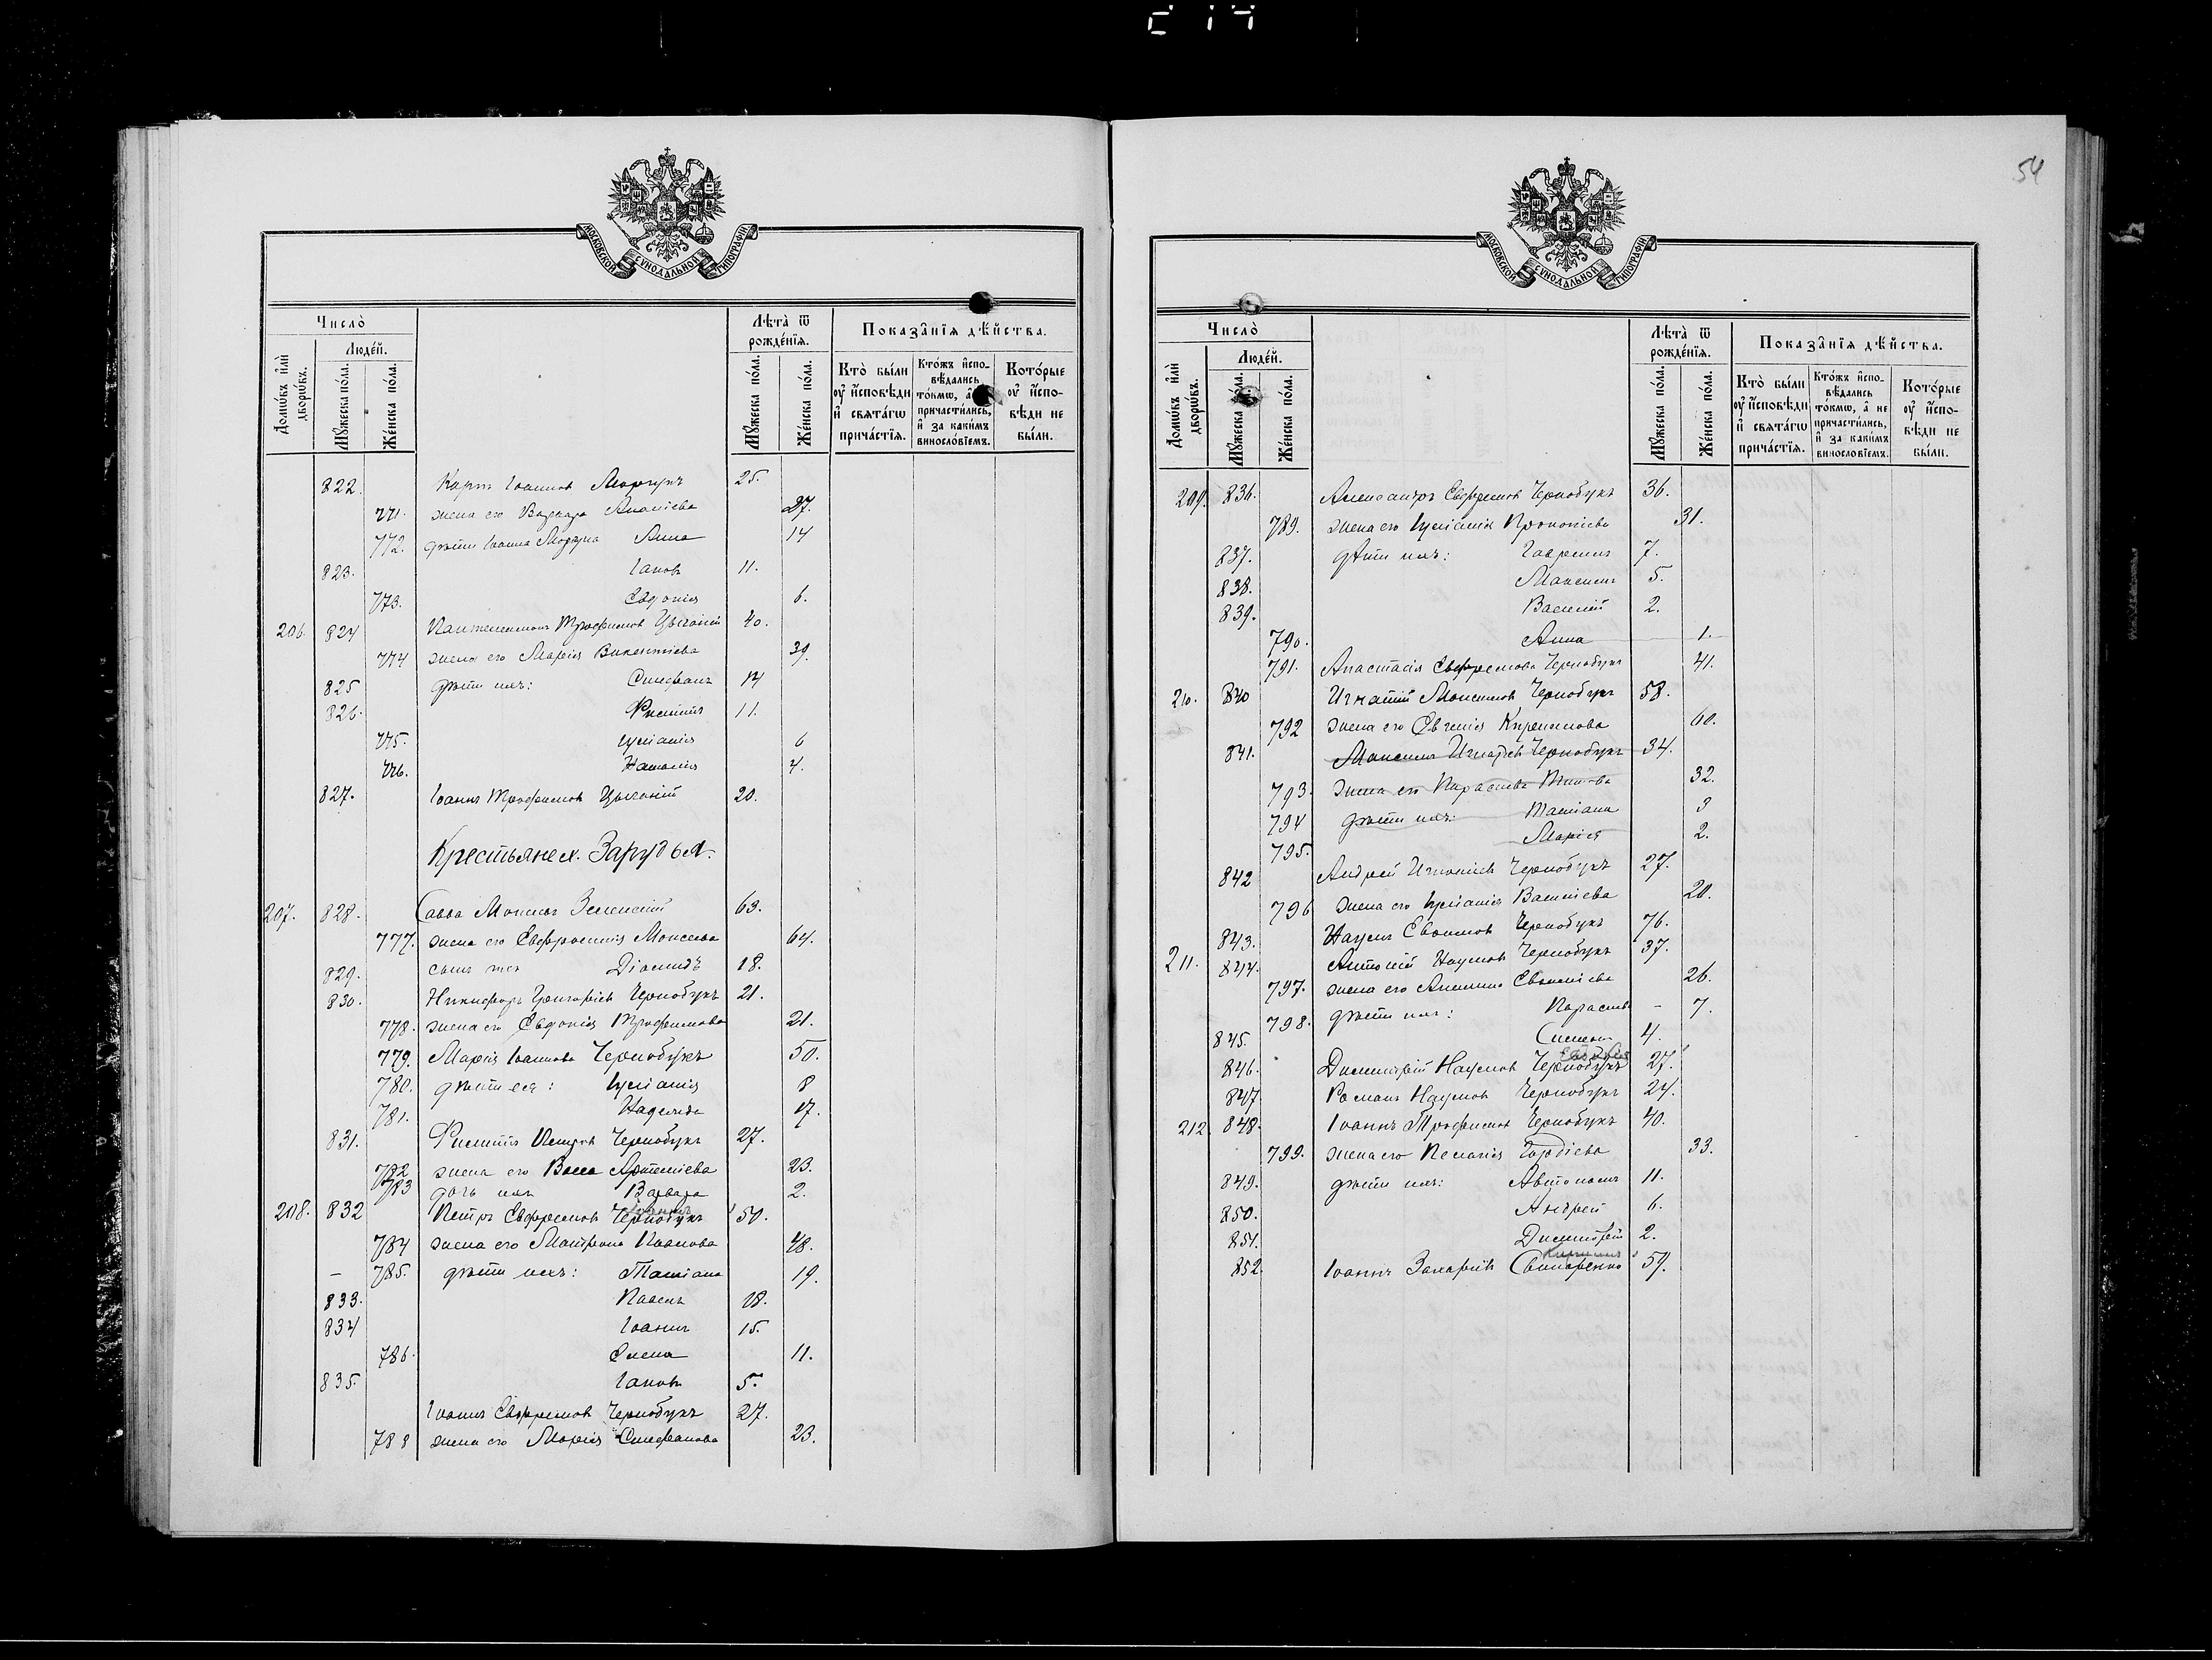 54
МОСКОВСКОЙ СѴНОДАЛЬНОЙ ТИПОГРАФІИ
Число̀
Людéй.
Домѡ́въ и҆лѝ дворѡ́въ.
Мꙋ́жеска по́ла.
Же́нска по́ла.
Лѣта̀ ѿ рожде́нїѧ.
Мꙋ́жеска по́ла.
Же́нска по́ла.
Показа̑нїѧ дѣ́йства.
Кто̀ бы́ли ᲂу҆ и҆́сповѣди и҆ свѧта́гѡ прича́стїѧ.
Кто́жъ и҆сповѣ́дались то́кмѡ, а҆ причасти́лись, и҆ за каки́мъ винослові́емъ.
Кото́рые ᲂу҆ и҆́сповѣди не бы́ли.
822. Карпъ Іоанновъ Моргунъ 25.
771. жена его Варвара Ананіева 27.
772. дѣти Іоанна Моргуна Анна 14
823. Іаковъ 11.
773. Евдокія 6.
206. 824 Пантелеимонъ Трофимовъ 40.
774 жена его Марія Викентіева 39.
825 дѣти ихъ: Стефанъ 14
826. Филиппъ 11.
775. Іуліанія 6
776. Наталія 4.
827. Іоаннъ Трофимовъ 20.
Крестьяне х. Зарудья.
207. 828. Савва Моисеевъ Зеленскій 63.
777. жена его Евфросинія Моисеева 64.
829. сынъ ихъ Діомидъ 18.
830. Никифоръ Григоріевъ Чернобукъ 21.
778. жена его Евдокія Трофимова 21.
779. Марія Іоаннова Чернобукъ 50.
780. дѣти ея: Іуліанія 8
781. Надежда 17.
831. Филиппъ Петровъ Чернобукъ 27.
782 жена его Васса Артеміева 23.
783 дочь ихъ Варвара 2.
208. 832 Петръ Евфремовъ Чернобукъ 50.
784 жена его Матрона Павлова 48.
– 785. дѣти ихъ: Татіана 19.
833. Павелъ 18.
834 Іоаннъ 15.
786. Елена 11.
835. Іаковъ 5.
Іоаннъ Евфремовъ Чернобукъ 27.
788 жена его Марія Стефанова 23.
МОСКОВСКОЙ СѴНОДАЛЬНОЙ ТИПОГРАФІИ
Число̀
Людéй.
Домѡ́въ и҆лѝ дворѡ́въ.
Мꙋ́жеска по́ла.
Же́нска по́ла.
Лѣта̀ ѿ рожде́нїѧ.
Мꙋ́жеска по́ла.
Же́нска по́ла.
Показа̑нїѧ дѣ́йства.
Кто̀ бы́ли ᲂу҆ и҆́сповѣди и҆ свѧта́гѡ прича́стїѧ.
Кто́жъ и҆сповѣ́дались то́кмѡ, а҆ не причасти́лись, и҆ за каки́мъ винослові́емъ.
Кото́рые ᲂу҆ и҆́сповѣди не бы́ли.
209. 836. Александръ Евфремовъ Чернобукъ 36.
789. жена его Іуліанія Прокопіева 31.
837. дѣти ихъ: Гавріилъ 7.
838. Максимъ 5.
839. Василій 2.
790. Анна 1.
791. Анастасія Евфремова Чернобукъ 41.
210. 840 Игнатій Максимовъ Чернобукъ 58.
792 жена его Евгенія 60.
841. Максимъ Игнатіевъ Чернобукъ 34.
793. жена его Параскева Титова 32.
794 дѣти ихъ: Татіана 3
795. Марія 2.
842 Андрей Игнатіевъ Чернобукъ 27.
796 жена его Іуліанія Василіева 20.
843. Наумъ Евѳимовъ Чернобукъ 76.
211. 844. Антоній Наумовъ Чернобукъ 37.
797. жена его 26.
798. дѣти ихъ: Параскева – 7.
845. Симеонъ 4.
846. Димитрій Наумовъ Чернобукъ 27.
847 Романъ Наумовъ Чернобукъ 24.
212 848. Іоаннъ Трофимовъ Чернобукъ 40.
799. жена его Пелагія Гордіева 33.
849. дѣти ихъ: Автономъ 11.
850. Андрей 6.
851. Димитрій 2.
852. Іоаннъ Захаріевъ Свинаренко 59.